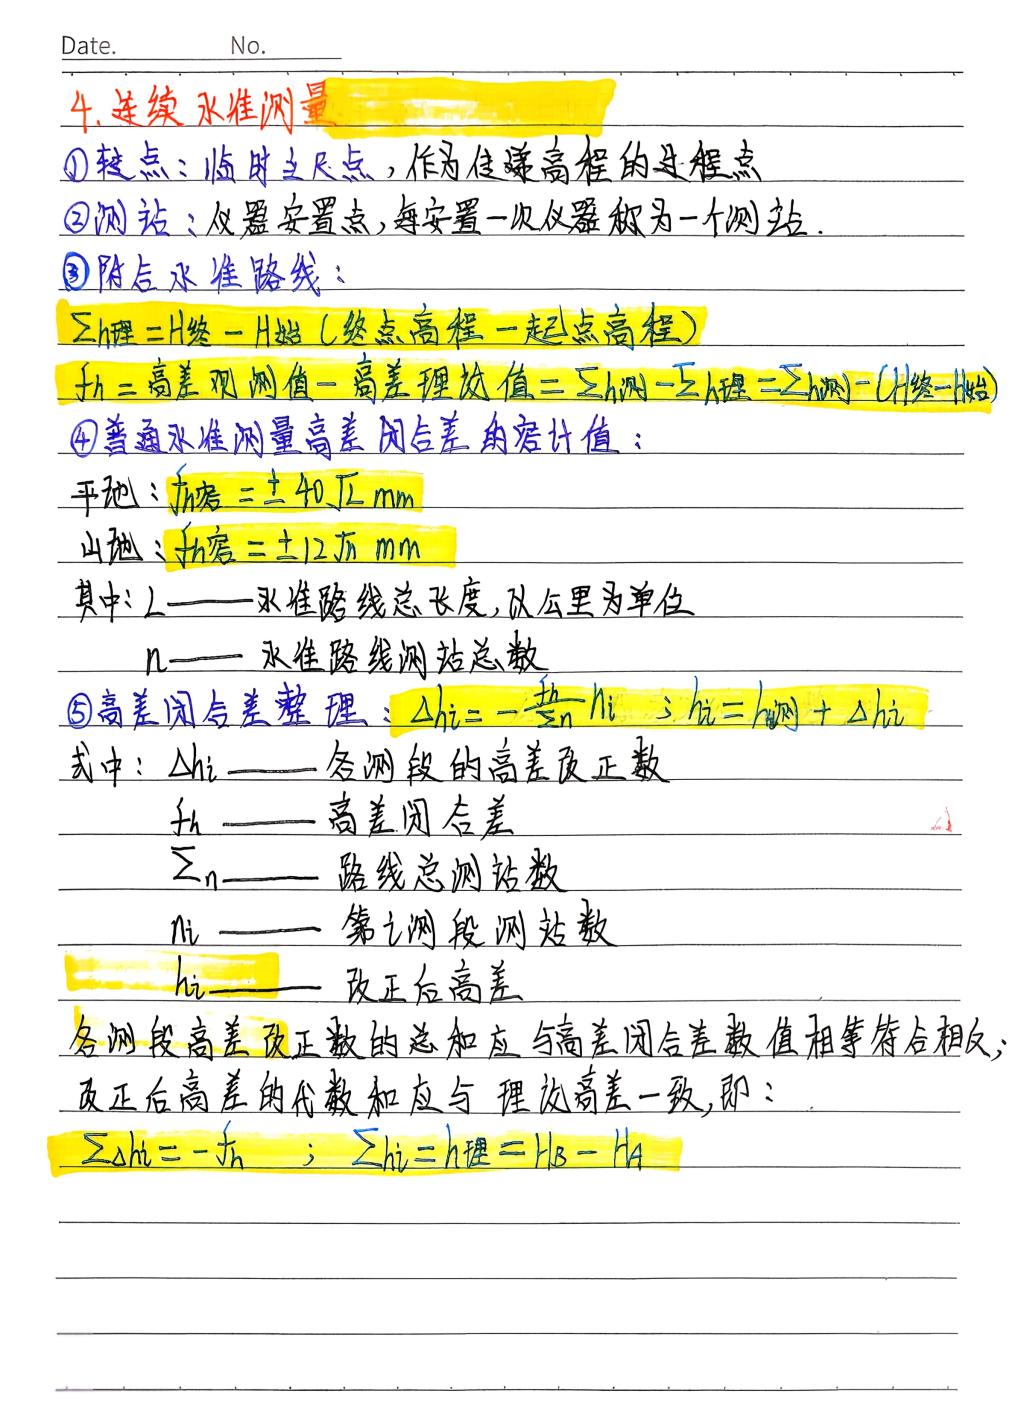 Date. No.
4.连续水准测量
①转点：临时立尺点，作为传递高程的过程点
②测站：仪器安置点，每安置一次仪器称为一个测站.
③附合水准路线：
∑h理=H终-H始(终点高程-起点高程)
fh=高差观测值-高差理论值=∑h测-∑h理=∑h测-(H终-H始)
④普通水准测量高差闭合差的容计值：
平地：fh容=±40√L mm
山地：fh容=±12√n mm
其中：L——水准路线总长度,以公里为单位
n——水准路线测站总数
⑤高差闭合差整理：Δhi=-fh/∑n ni ；hi=h测+Δhi
式中：Δhi——各测段的高差改正数
fh——高差闭合差
∑n——路线总测站数
ni——第i测段测站数
hi——改正后高差
各测段高差改正数的总和应与高差闭合差数值相等符合相反；
改正后高差的代数和应与理论高差一致,即：
∑Δhi=-fh ； ∑hi=h理=HB-HA